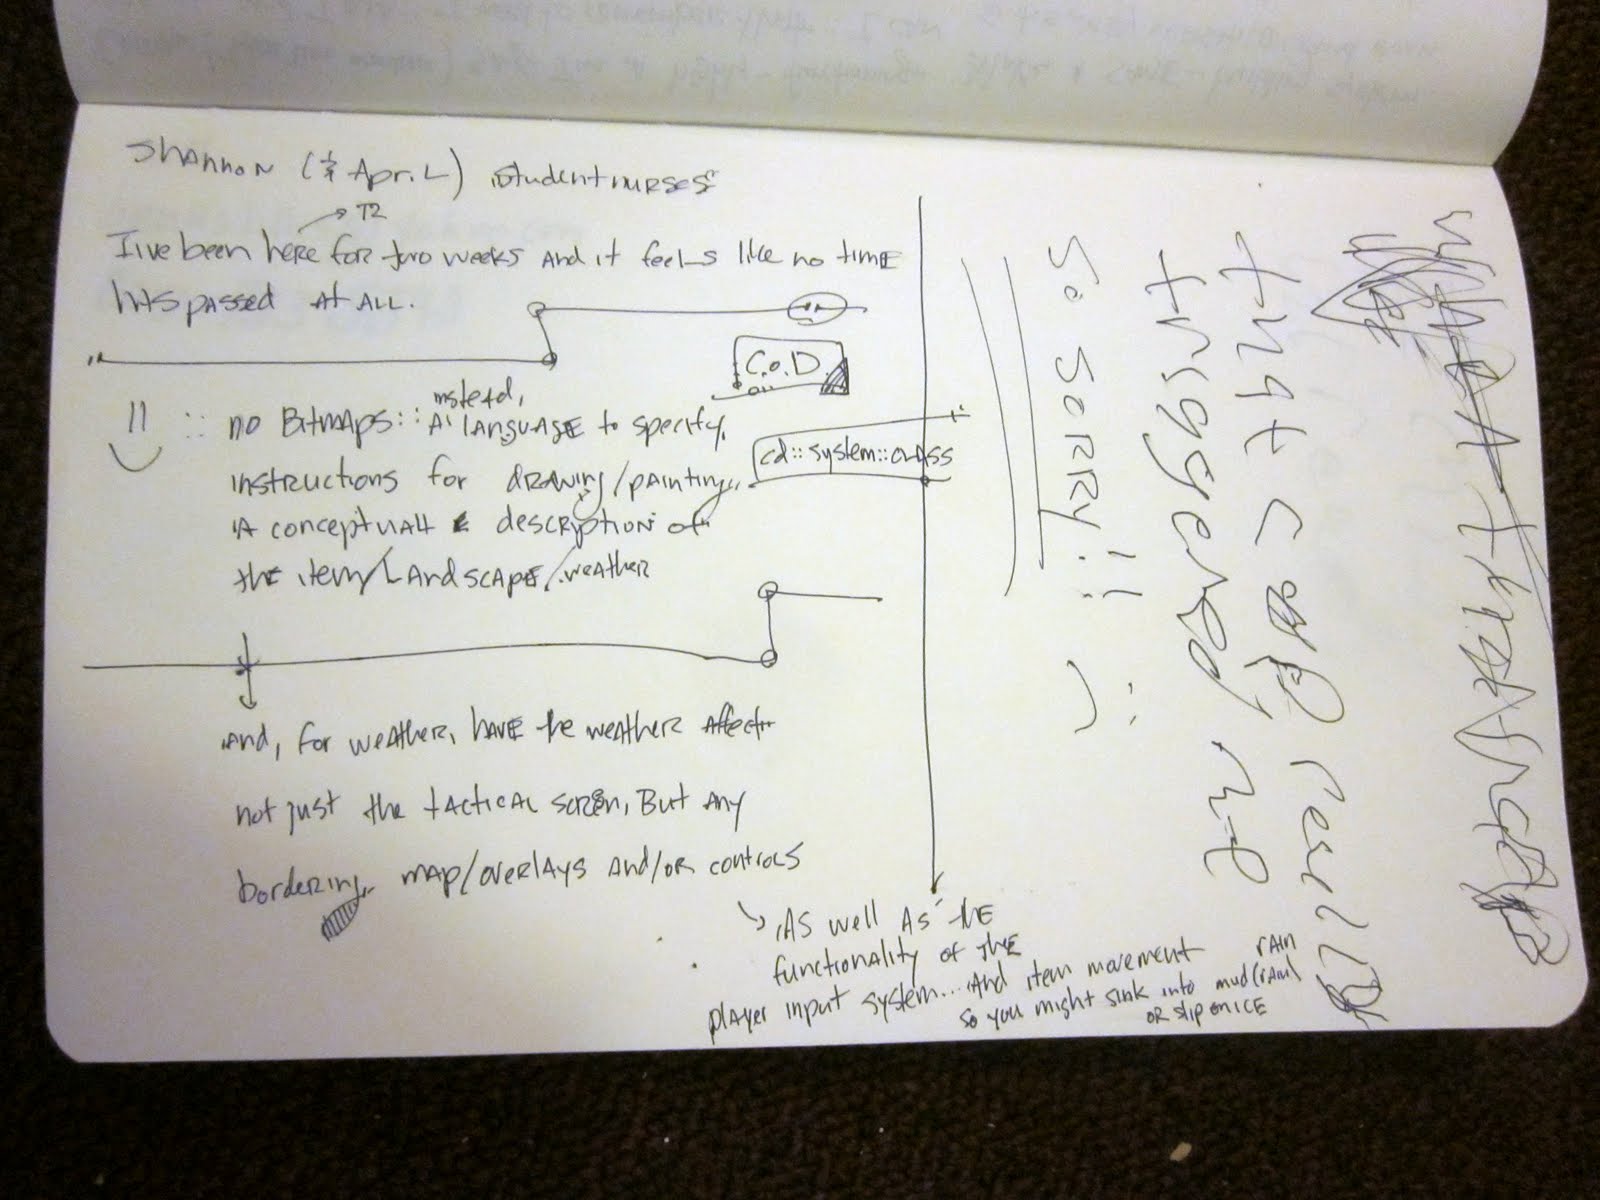 Shannon (& April) student nurses
→ T2
I've been here for two weeks and it feels like no time
has passed at all.
C.o.D.
instead,
:: no Bitmaps:: A language to specify
cd::system::class
instructions for drawing/painting
A conceptual & description of
the item/Landscape/weather
And, for weather, have the weather affect
not just the tactical screen, But any
bordering map/overlays and/or controls
As well as the
functionality of the
player input system... And item movement
so you might sink into mud (rain)
rain
or slip on ice
that card really
triggered me
so sorry!!
:(